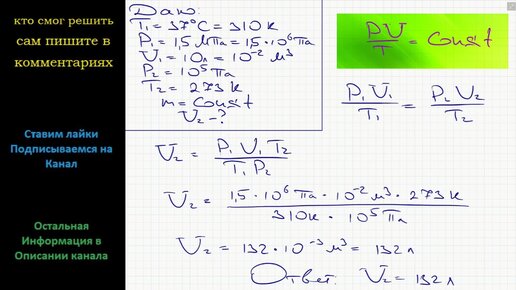 кто смог решить
сам пишите в
комментариях
Ставим лайки
Подписываемся на
Канал
Остальная
Информация в
Описании канала
Дано:
T₁ = 37°C = 310 K
P₁ = 1,5 МПа = 1,5·10⁶ Па
V₁ = 10л = 10⁻² м³
P₂ = 10⁵ Па
T₂ = 273 K
m = Const
V₂ - ?
PV/T = Const
P₁V₁/T₁ = P₂V₂/T₂
V₂ = P₁V₁T₂/T₁P₂
V₂ = 1,5·10⁶ Па·10⁻² м³·273 K/310 K·10⁵ Па
V₂ = 132·10⁻³ м³ = 132 л
Ответ: V₂ = 132 л